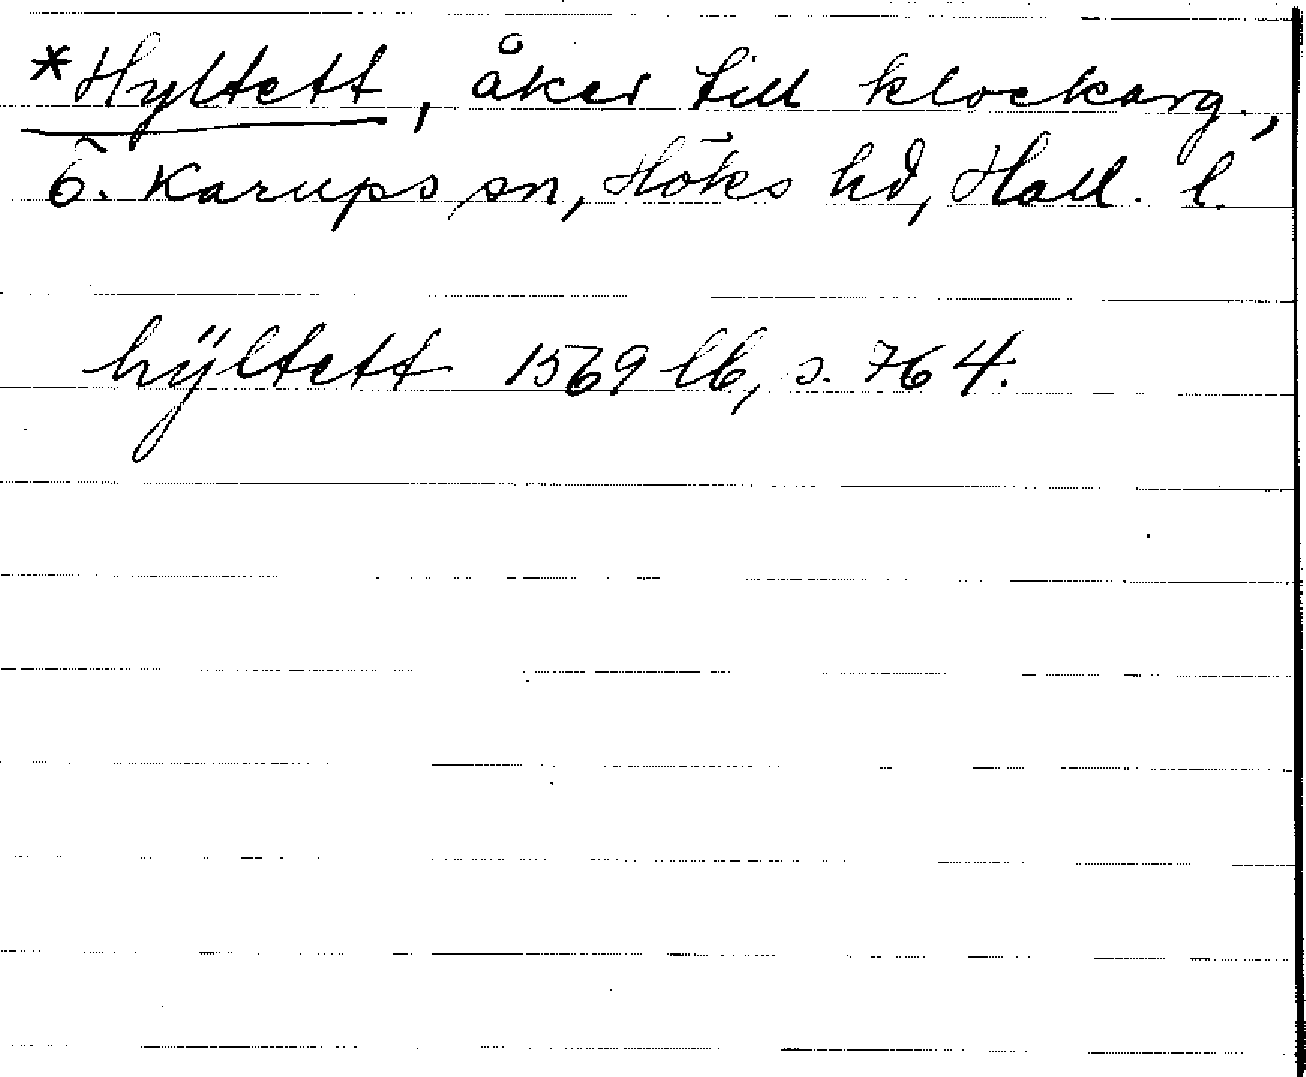 *Hyltett, åker till klockarg.,
Ö. Karups sn, Höks hd, Hall. l.
hÿltett 1569 lb, s. 764.